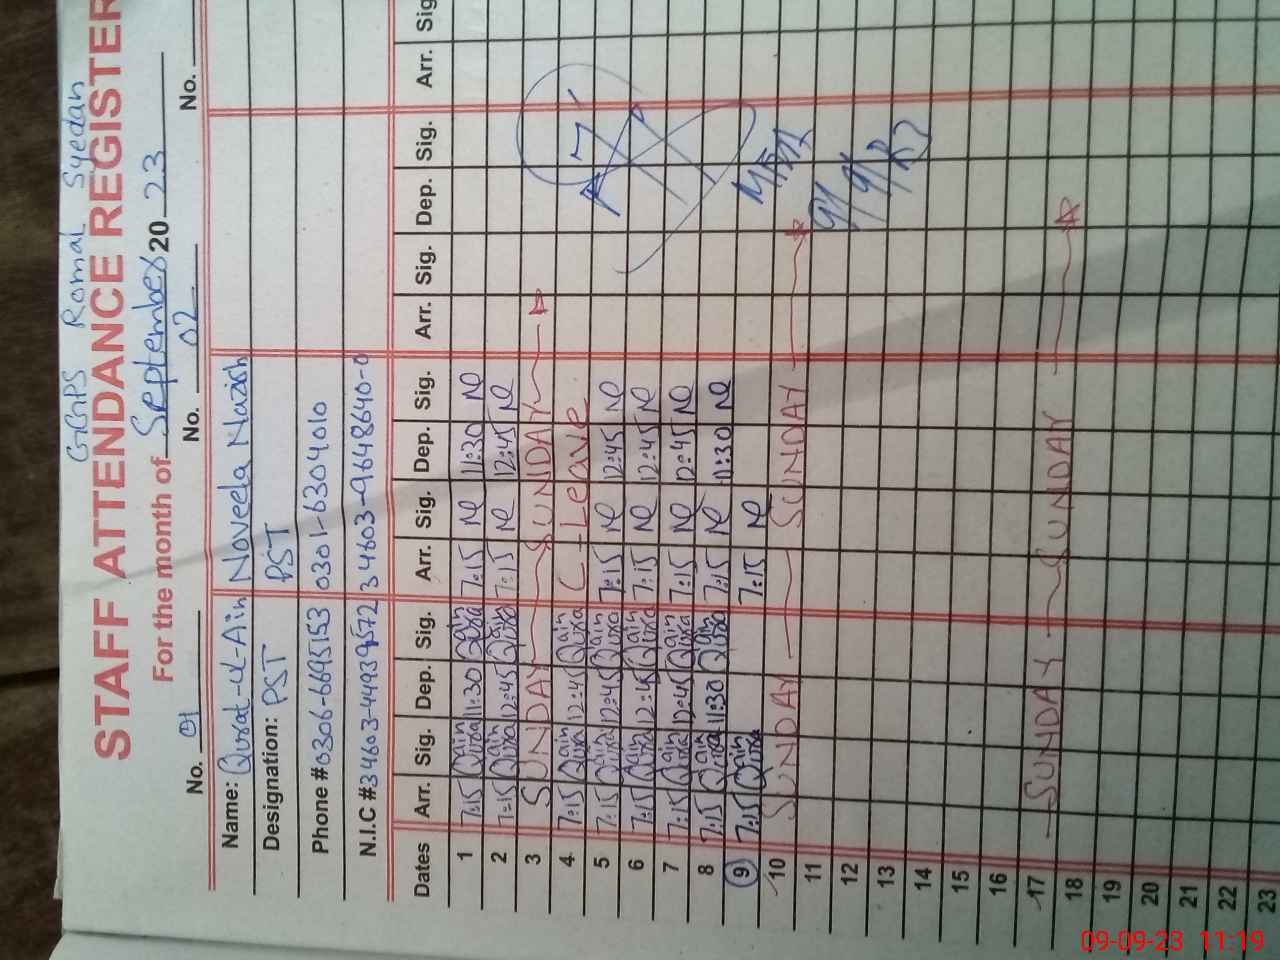 GGPS Romal Syedan
STAFF ATTENDANCE REGISTER
For the month of September 20 23
No. 01 No. 02 No.
Name: Qurat-ul-Ain Noveela Nazish
Designation: PST PST
Phone # 0306-6695153 0301-6304010
N.I.C # 34603-44939572 34603-9648640-0
Dates Arr. Sig. Dep. Sig. Arr. Sig. Dep. Sig. Arr. Sig. Dep. Sig. Arr. Sig.
1 7:15 Qurat ain 11:30 Qurat ain 7:15 Ne 11:30 Ne
2 7:15 Qurat ain 12:45 Qurat ain 7:15 Ne 12:45 Ne
3 SUNDAY SUNDAY
4 7:15 Qurat ain 12:45 Qurat ain C-Leave
5 7:15 Qurat ain 12:45 Qurat ain 7:15 Ne 12:45 Ne
6 7:15 Qurat ain 12:45 Qurat ain 7:15 Ne 12:45 Ne
7 7:15 Qurat ain 12:45 Qurat ain 7:15 Ne 12:45 Ne
8 7:15 Qurat ain 11:30 Qurat ain 7:15 Ne 11:30 Ne
9 7:15 Qurat ain 7:15 Ne
10 SUNDAY SUNDAY
11
12
13
14
15
16
17 SUNDAY SUNDAY
18
19
20
21
22
23
09-09-23 11:19